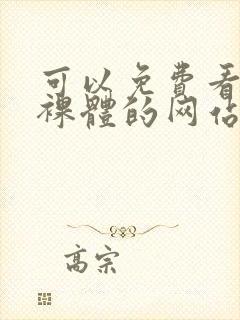 可以免費看
裸體的网站
高宗